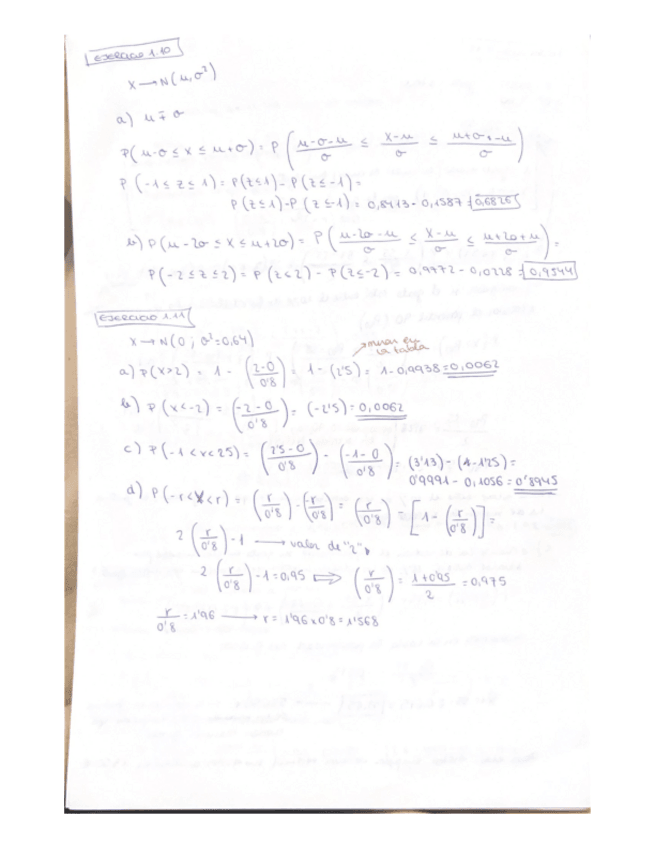 EJERCICIO 1.10
X → N(μ, σ²)
a) μ ∓ σ
P(μ-σ ≤ x ≤ μ+σ) = P( (μ-σ-μ)/σ ≤ (x-μ)/σ ≤ (μ+σ-μ)/σ )
P(-1 ≤ z ≤ 1) = P(z≤1) - P(z≤-1) =
P(z≤1) - P(z≤-1) = 0,8413 - 0,1587 = 0,6826
b) P(μ-2σ ≤ X ≤ μ+2σ) = P( (μ-2σ-μ)/σ ≤ (X-μ)/σ ≤ (μ+2σ+μ)/σ ) =
P(-2 ≤ z ≤ 2) = P(z<2) - P(z≤-2) = 0,9972 - 0,0228 = 0,9544
EJERCICIO 1.11
X → N(0; σ²=0,64)
mirar en la tabla
a) P(x>2) = 1 - ((2-0)/0'8) = 1 - (2'5) = 1 - 0,9938 = 0,0062
b) P(x<-2) = ((-2-0)/0'8) = (-2'5) = 0,0062
c) P(-1<x<25) = ((2'5-0)/0'8) - ((-1-0)/0'8) = (3'13) - (1-1'25) =
0'9991 - 0,1056 = 0'8945
d) P(-r<X<r) = (r/0'8) - (-r/0'8) = (r/0'8) = [1 - (r/0'8)] =
2 (r/0'8) - 1 → valor de "z"
2 (r/0'8) - 1 = 0,95 ⇒ (r/0'8) = (1+0'95)/2 = 0,975
r/0'8 = 1'96 → r = 1'96 x 0'8 = 1'568